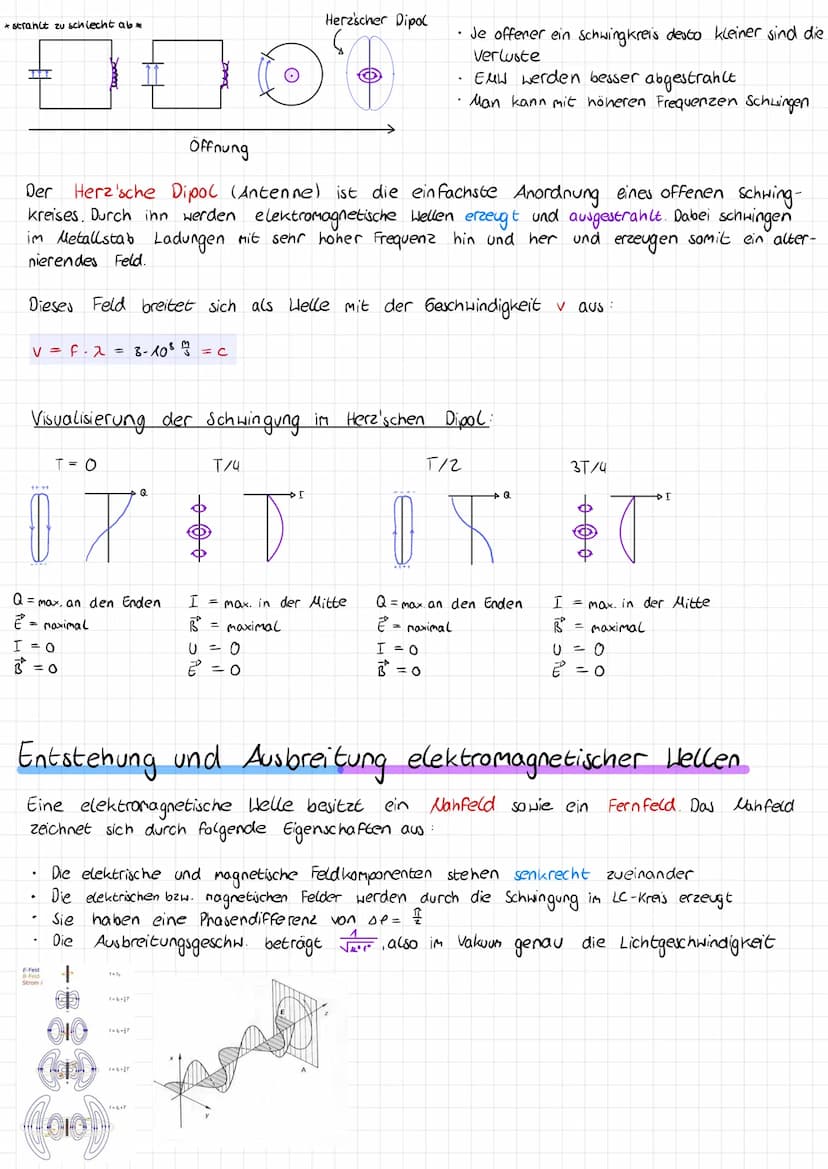 * strahlt zu schlecht ab *
Herz'scher Dipol
• Je offener ein schwingkreis desto kleiner sind die
verluste
• EMW werden besser abgestrahlt
• Man kann mit höheren Frequenzen schwingen
Öffnung
Der Herz'sche Dipol (Antenne) ist die einfachste Anordnung eines offenen schwing-
kreises. Durch ihn werden elektromagnetische Wellen erzeugt und ausgestrahlt. Dabei schwingen
im Metallstab Ladungen mit sehr hoher Frequenz hin und her und erzeugen somit ein alter-
nierendes Feld.
Dieses Feld breitet sich als Welle mit der Geschwindigkeit v aus:
v = f · λ = 3·10⁸ m/s = c
Visualisierung der Schwingung im Herz'schen Dipol:
T = 0 T/4 T/2 3T/4
Q I Q I
Q = max. an den Enden
E⃗ = maximal
I = 0
B⃗ = 0
I = max. in der Mitte
B⃗ = maximal
U = 0
E⃗ = 0
Q = max. an den Enden
E⃗ = maximal
I = 0
B⃗ = 0
I = max. in der Mitte
B⃗ = maximal
U = 0
E⃗ = 0
Entstehung und Ausbreitung elektromagnetischer Wellen
Eine elektromagnetische Welle besitzt ein Nahfeld sowie ein Fernfeld. Das Nahfeld
zeichnet sich durch folgende Eigenschaften aus:
• Die elektrische und magnetische Feldkomponenten stehen senkrecht zueinander
• Die elektrischen bzw. magnetischen Felder werden durch die Schwingung im LC-Kreis erzeugt
• Sie haben eine Phasendifferenz von Δφ = π/2
• Die Ausbreitungsgeschw. beträgt , also im Vakuum genau die Lichtgeschwindigkeit
E-Feld
B-Feld
Strom I
x
y
z
E
A